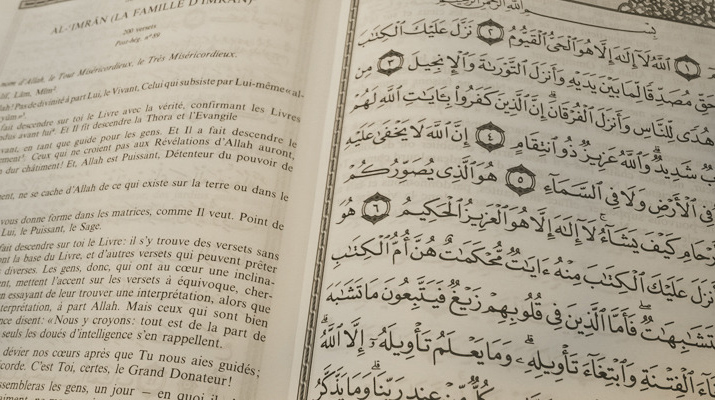 AL-'IMRÂN (LA FAMILLE D'IMRAN)
200 versets
Post-hég. n° 89
d'Allah, le Tout Miséricordieux, le Très Miséricordieux.
Lâm, Mîm
Pas de divinité à part Lui, le Vivant, Celui qui subsiste par Lui-même «al-
fait descendre sur toi le Livre avec la vérité, confirmant les Livres
avant lui. Et Il fit descendre la Thora et l'Evangile
en tant que guide pour les gens. Et Il a fait descendre le
Ceux qui ne croient pas aux Révélations d'Allah auront,
dur châtiment! Et, Allah est Puissant, Détenteur du pouvoir de
ne se cache d'Allah de ce qui existe sur la terre ou dans le
vous donne forme dans les matrices, comme Il veut. Point de
Lui, le Puissant, le Sage.
fait descendre sur toi le Livre: il s'y trouve des versets sans
la base du Livre, et d'autres versets qui peuvent prêter
diverses. Les gens, donc, qui ont au cœur une inclina-
mettent l'accent sur les versets à équivoque, cher-
en essayant de leur trouver une interprétation, alors que
interprétation, à part Allah. Mais ceux qui sont bien
disent: «Nous y croyons: tout est de la part de
seuls les doués d'intelligence s'en rappellent.
dévier nos cœurs après que Tu nous aies guidés;
C'est Toi, certes, le Grand Donateur!
rassembleras les gens, un jour — en quoi il
١ ٱللَّهُ لَآ إِلَٰهَ إِلَّا هُوَ ٱلْحَىُّ ٱلْقَيُّومُ ٢ نَزَّلَ عَلَيْكَ ٱلْكِتَٰبَ
مُصَدِّقًا لِّمَا بَيْنَ يَدَيْهِ وَأَنزَلَ ٱلتَّوْرَىٰةَ وَٱلْإِنجِيلَ ٣ مِن
هُدًى لِّلنَّاسِ وَأَنزَلَ ٱلْفُرْقَانَ إِنَّ ٱلَّذِينَ كَفَرُوا۟ بِـَٔايَٰتِ ٱللَّهِ لَهُمْ
شَدِيدٌ وَٱللَّهُ عَزِيزٌ ذُو ٱنتِقَامٍ ٤ إِنَّ ٱللَّهَ لَا يَخْفَىٰ عَلَيْهِ
فِى ٱلْأَرْضِ وَلَا فِى ٱلسَّمَآءِ ٥ هُوَ ٱلَّذِى يُصَوِّرُكُمْ
كَيْفَ يَشَآءُ لَآ إِلَٰهَ إِلَّا هُوَ ٱلْعَزِيزُ ٱلْحَكِيمُ ٦ هُوَ
أَنزَلَ عَلَيْكَ ٱلْكِتَٰبَ مِنْهُ ءَايَٰتٌ مُّحْكَمَٰتٌ هُنَّ أُمُّ ٱلْكِتَٰبِ
فَأَمَّا ٱلَّذِينَ فِى قُلُوبِهِمْ زَيْغٌ فَيَتَّبِعُونَ مَا تَشَٰبَهَ
ٱلْفِتْنَةِ وَٱبْتِغَآءَ تَأْوِيلِهِۦ وَمَا يَعْلَمُ تَأْوِيلَهُۥٓ إِلَّا ٱللَّهُ
كُلٌّ مِّنْ عِندِ رَبِّنَا وَمَا يَذَّكَّرُ